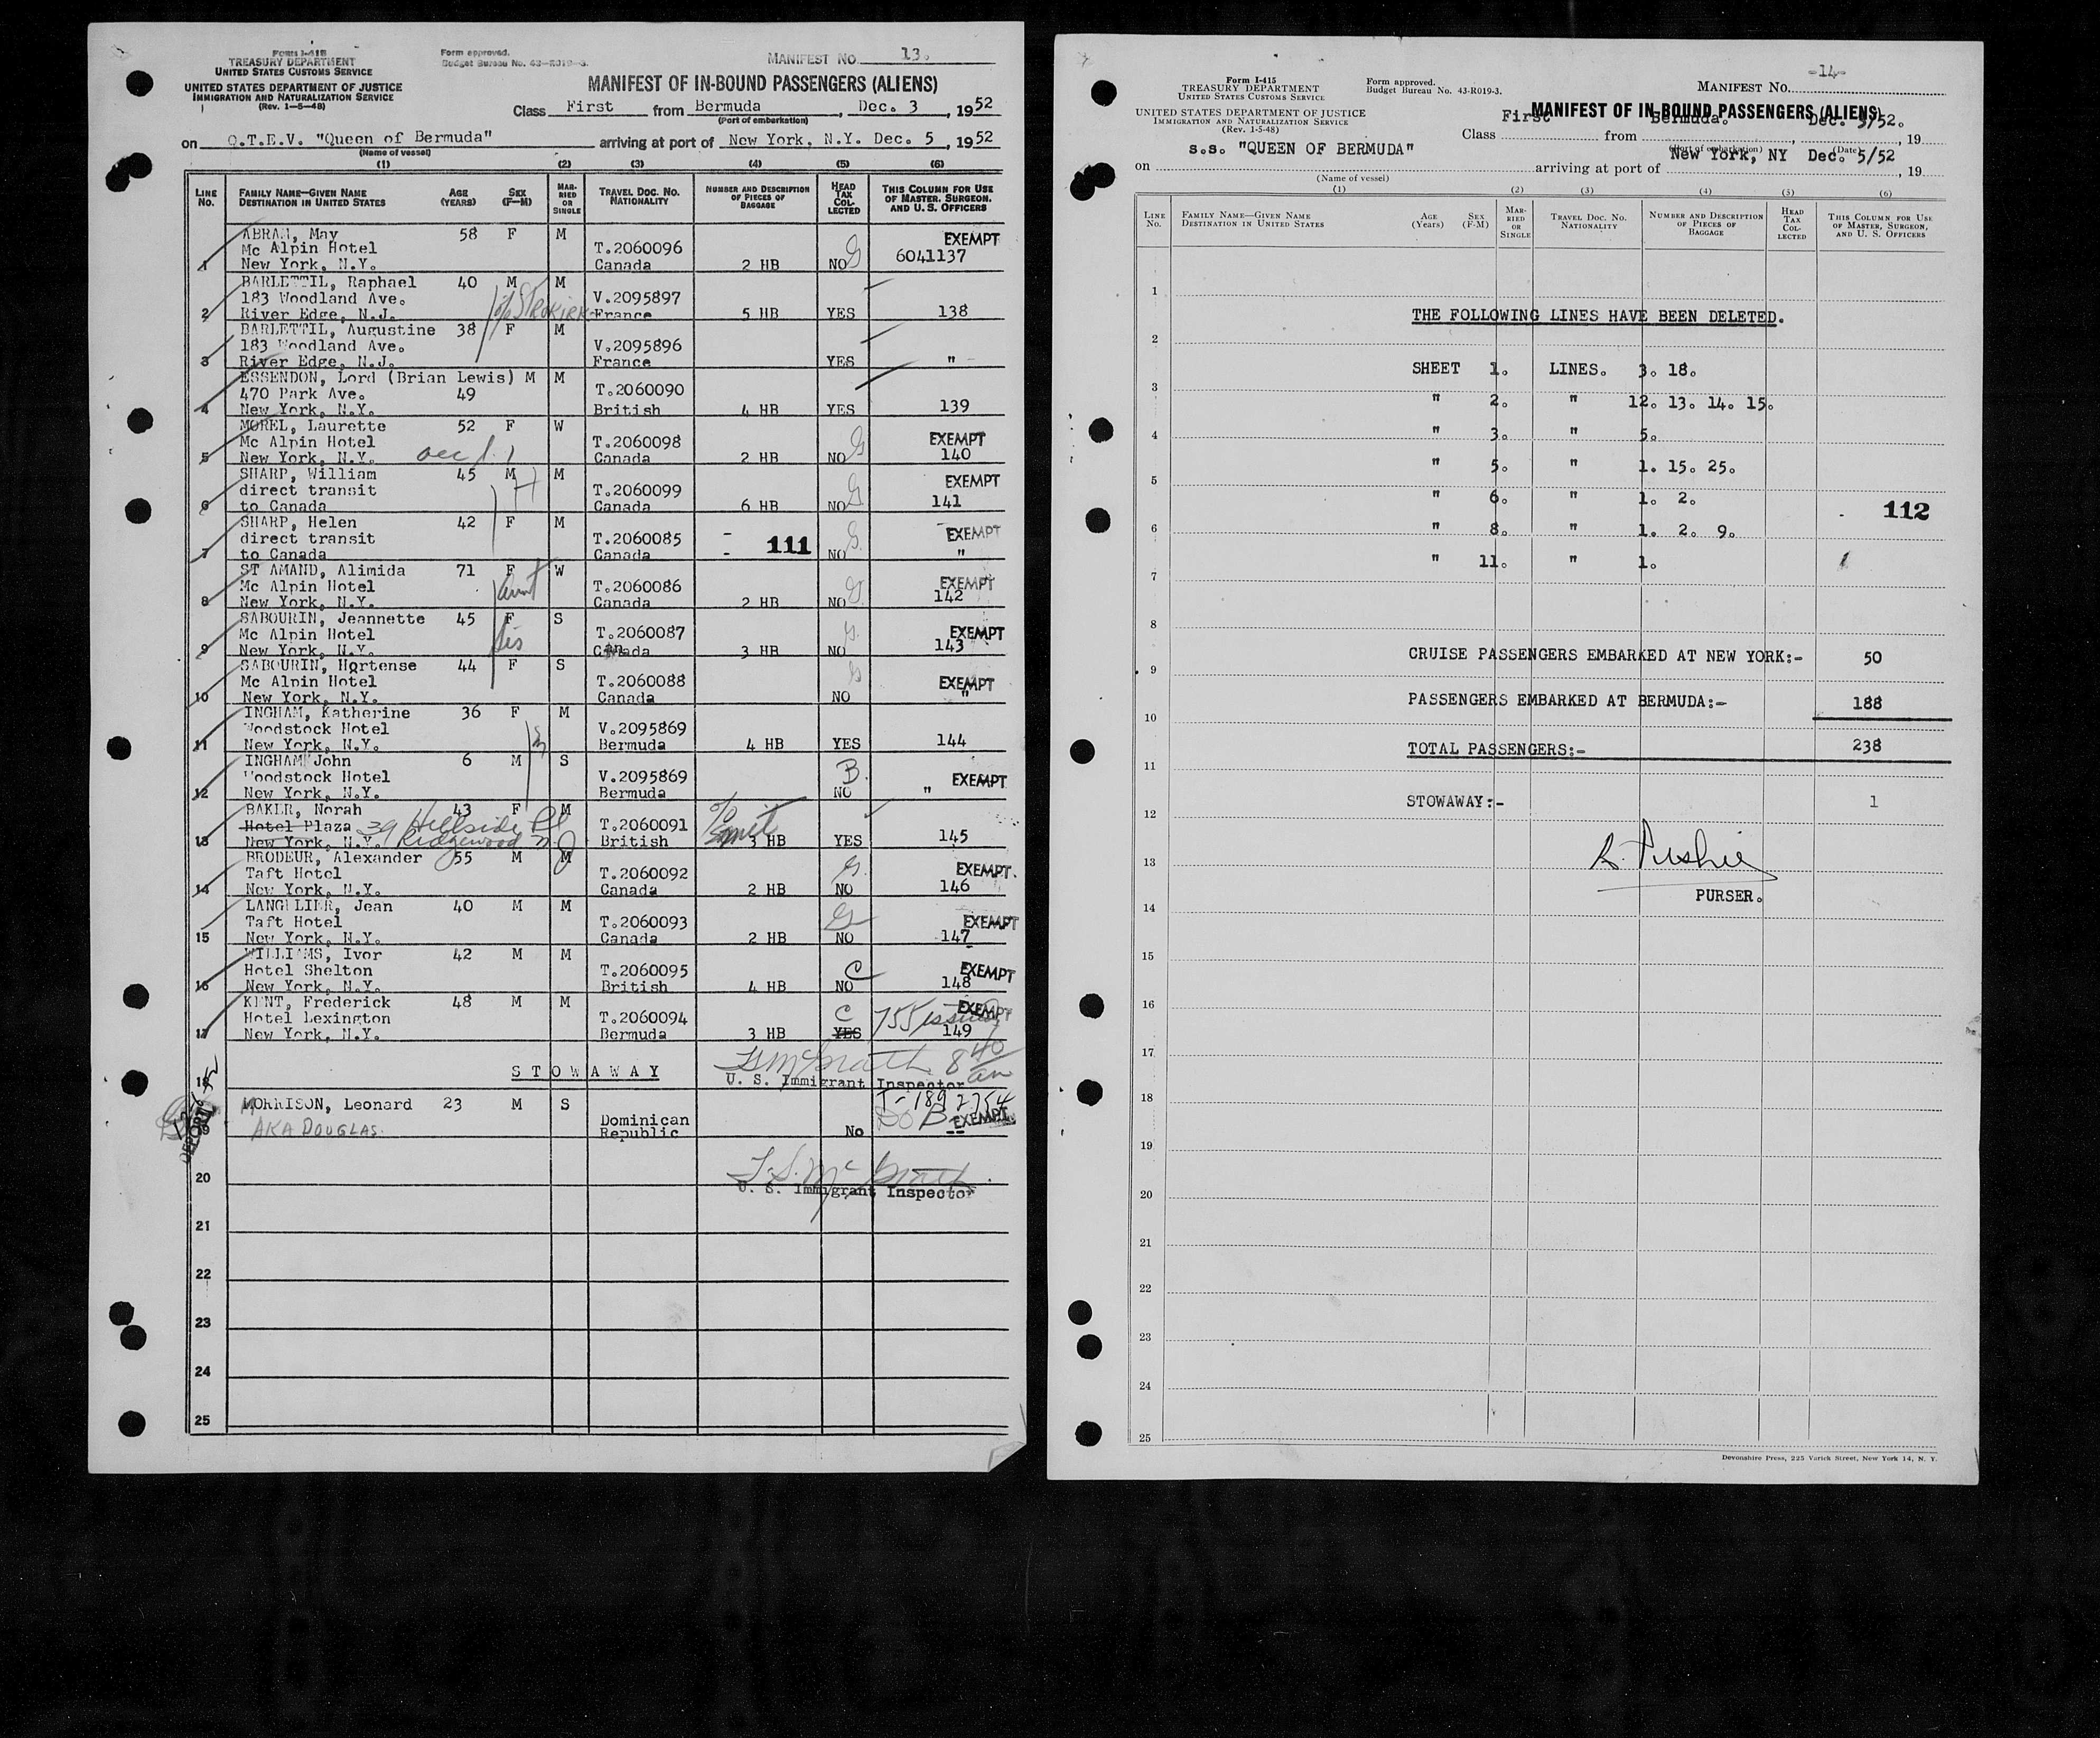 Form I-415
TREASURY DEPARTMENT
UNITED STATES CUSTOMS SERVICE
UNITED STATES DEPARTMENT OF JUSTICE
IMMIGRATION AND NATURALIZATION SERVICE
(Rev. 1-5-48)
Form approved.
Budget Bureau No. 43-R019-3.
MANIFEST NO. 13.
MANIFEST OF IN-BOUND PASSENGERS (ALIENS)
Class First from Bermuda, Dec. 3, 1952
(Port of embarkation)
on Q.T.E.V. "Queen of Bermuda" arriving at port of New York, N.Y. Dec. 5, 1952
(Name of vessel)
(1) (2) (3) (4) (5) (6)
LINE No. FAMILY NAME—GIVEN NAME DESTINATION IN UNITED STATES AGE (YEARS) SEX (F-M) MARRIED OR SINGLE TRAVEL DOC. NO. NATIONALITY NUMBER AND DESCRIPTION OF PIECES OF BAGGAGE HEAD TAX COLLECTED THIS COLUMN FOR USE OF MASTER, SURGEON, AND U. S. OFFICERS
ABRAM, May 58 F M EXEMPT
Mc Alpin Hotel T.2060096 6041137
1 New York, N.Y. Canada 2 HB NO G
BARLETTIL, Raphael 40 M M
183 Woodland Ave. V.2095897
2 River Edge, N.J. France 5 HB YES 138
BARLETTIL, Augustine 38 F M
183 Woodland Ave. V.2095896
3 River Edge, N.J. France YES "
ESSENDON, Lord (Brian Lewis) M M
470 Park Ave. 49 T.2060090
4 New York, N.Y. British 4 HB YES 139
MOREL, Laurette 52 F W
Mc Alpin Hotel T.2060098 G EXEMPT
5 New York, N.Y. Canada 2 HB NO 140
SHARP, William 45 M M EXEMPT
direct transit T.2060099 G
6 to Canada Canada 6 HB NO 141
SHARP, Helen 42 F M
direct transit T.2060085 111 G EXEMPT
7 to Canada Canada NO "
ST AMAND, Alimida 71 F W
Mc Alpin Hotel Aunt T.2060086 G EXEMPT
8 New York, N.Y. Canada 2 HB NO 142
SABOURIN, Jeannette 45 F S
Mc Alpin Hotel sis T.2060087 G EXEMPT
9 New York, N.Y. Canada 3 HB NO 143
SABOURIN, Hortense 44 F S
Mc Alpin Hotel T.2060088 G EXEMPT
10 New York, N.Y. Canada NO "
INGHAM, Katherine 36 F M
Woodstock Hotel V.2095869
11 New York, N.Y. Bermuda 4 HB YES 144
INGHAM John 6 M S
Woodstock Hotel V.2095869 B
12 New York, N.Y. Bermuda NO " EXEMPT
BAKER, Norah 43 F M
Hotel Plaza 39 Hillside Pl T.2060091
13 New York, N.Y. Ridgewood N.J. British 3 HB YES 145
BRODEUR, Alexander 55 M M
Taft Hotel T.2060092 G EXEMPT.
14 New York, N.Y. Canada 2 HB NO 146
LANGELIER, Jean 40 M M
Taft Hotel T.2060093 G EXEMPT
15 New York, N.Y. Canada 2 HB NO 147
WILLIAMS, Ivor 42 M M
Hotel Shelton T.2060095 C EXEMPT
16 New York, N.Y. British 4 HB NO 148
KENT, Frederick 48 M M
Hotel Lexington T.2060094 C EXEMPT
17 New York, N.Y. Bermuda 3 HB YES 149
18 STOWAWAY
U. S. Immigrant Inspector
MORRISON, Leonard 23 M S
AKA DOUGLAS. Dominican EXEMPT
19 Republic No
20
U. S. Immigrant Inspector
21
22
23
24
25
Form I-415
TREASURY DEPARTMENT
UNITED STATES CUSTOMS SERVICE
UNITED STATES DEPARTMENT OF JUSTICE
IMMIGRATION AND NATURALIZATION SERVICE
(Rev. 1-5-48)
Form approved.
Budget Bureau No. 43-R019-3.
MANIFEST No. -14-
MANIFEST OF IN-BOUND PASSENGERS (ALIENS)
Class First from Bermuda. Dec. 3/52. , 19
(Port of embarkation) (Date)
on s.s. "QUEEN OF BERMUDA" arriving at port of New York, NY Dec. 5/52 , 19
(Name of vessel)
(1) (2) (3) (4) (5) (6)
LINE No. FAMILY NAME—GIVEN NAME DESTINATION IN UNITED STATES AGE (Years) SEX (F-M) MARRIED OR SINGLE TRAVEL DOC. NO. NATIONALITY NUMBER AND DESCRIPTION OF PIECES OF BAGGAGE HEAD TAX COLLECTED THIS COLUMN FOR USE OF MASTER, SURGEON, AND U. S. OFFICERS
1
THE FOLLOWING LINES HAVE BEEN DELETED.
2
SHEET 1. LINES. 3. 18.
3
" 2. " 12. 13. 14. 15.
4 " 3. " 5.
" 5. " 1. 15. 25.
5
" 6. " 1. 2.
112
6 " 8. " 1. 2. 9.
" 11. " 1.
7
8
CRUISE PASSENGERS EMBARKED AT NEW YORK:- 50
9
PASSENGERS EMBARKED AT BERMUDA:- 188
10
TOTAL PASSENGERS:- 238
11
STOWAWAY:- 1
12
13
PURSER.
14
15
16
17
18
19
20
21
22
23
24
25
Devonshire Press, 225 Varick Street, New York 14, N. Y.